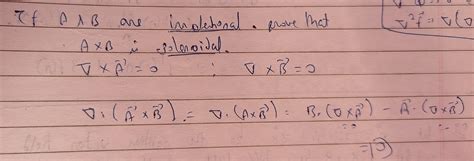 If A & B are irrotational. prove that
A×B is solenoidal.
∇ × A⃗ = 0 ; ∇ × B⃗ = 0
∇.(A⃗ × B⃗) = ∇.(A×B⃗) = B.(∇×A⃗) − A⃗.(∇×B⃗)
=0 =0
=0
∇²f⃗ = ∇(∇